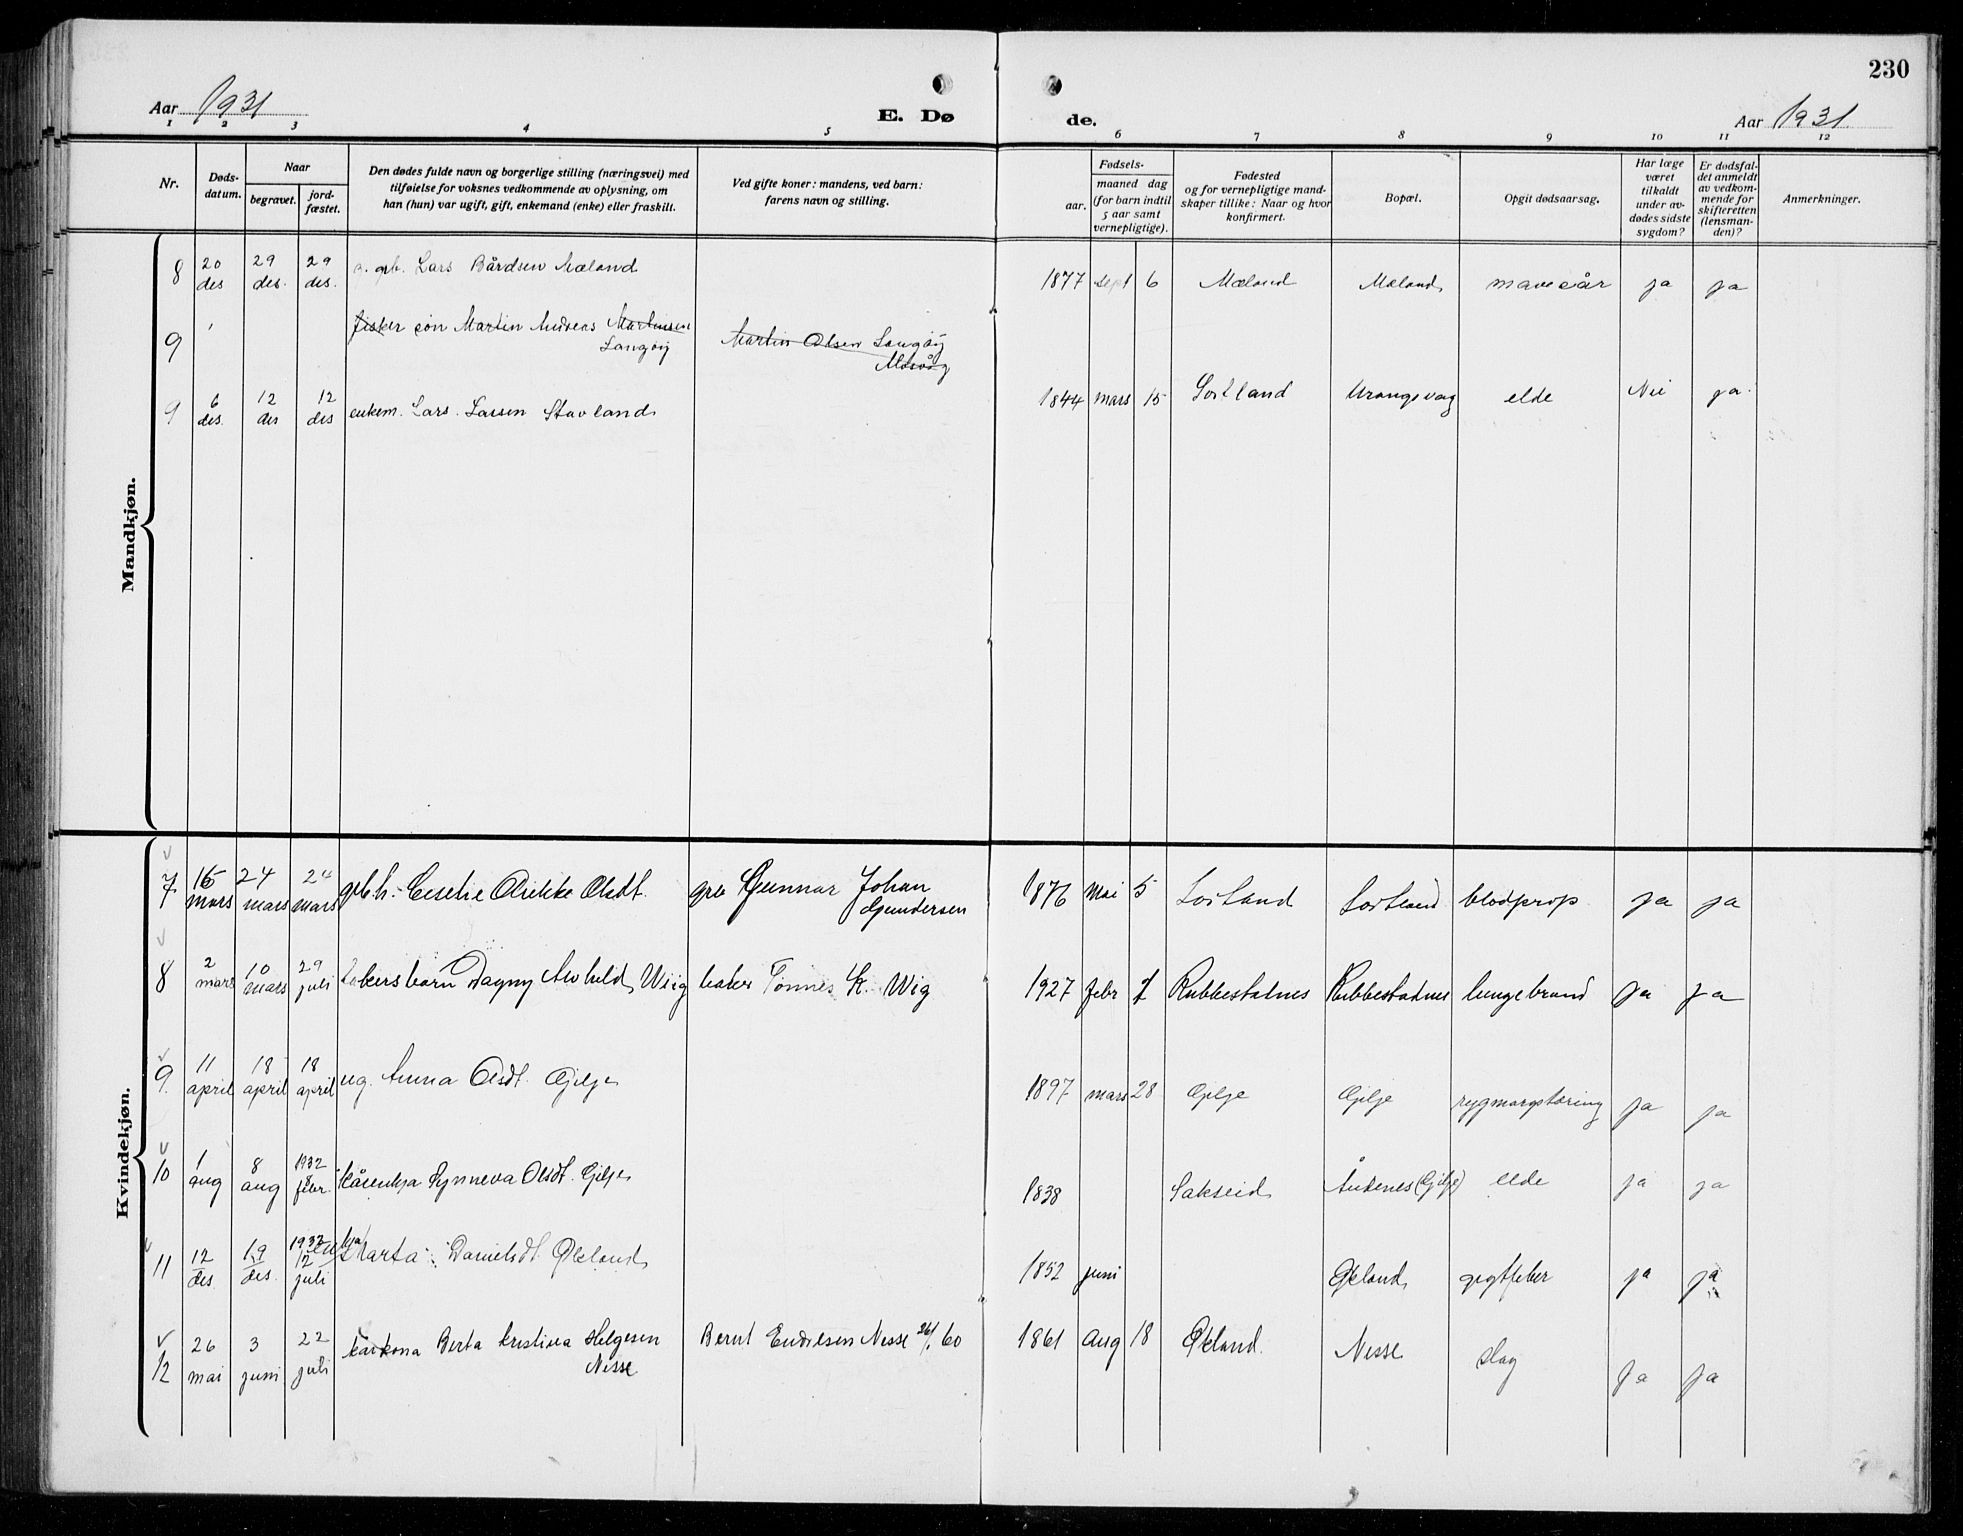 230
Aar 1931
E. Dø
de.
Aar 1931
1 2 3 4 5 6 7 8 9 10 11 12
Nr.
Døds-
datum.
Naar
begravet.
jord-
fæstet.
Den dødes fulde navn og borgerlige stilling (næringsvei) med
tilføielse for voksnes vedkommende av oplysning, om
han (hun) var ugift, gift, enkemand (enke) eller fraskilt.
Ved gifte koner: mandens, ved barn:
farens navn og stilling.
Fødsels-
aar.
maaned dag
(for barn indtil
5 aar samt
vernepligtige).
Fødested
og for vernepligtige mand-
skaper tillike: Naar og hvor
konfirmert.
Bopæl.
Opgit dødsaarsag.
Har læge
været
tilkaldt
under av-
dødes sidste
sygdom?
Er dødsfal-
det anmeldt
av vedkom-
mende for
skifteretten
(lensman-
den)?
Anmerkninger.
Mandkjøn.
8 20 des 29 des. 29 des. grb. Lars Bårdsen Mæland 1877 sept 6 Mæland Mæland mavesår ja ja
9 fisker søn Martin Andreas Martinsen Langøy Martin Olsen Langøy Mosvåg
9 6 des. 12 des 12 des enkem. Lars Larsen Stavland 1844 mars 15 Sortland Urangsvag elde Nei ja
Kvindekjøn.
7 15 mars 24 mars 24 mars grb.h. Olsdt. grb Gunnar Johan Gundersen 1876 Mai 5 Sortland Sortland blodprop ja ja
8 2 mars 10 mars 29 juli bakers barn Dagny Alvhild Wiig baker Tønnes K. Wiig 1927 febr 7 Rubbestadnes Rubbestadnes lungebrand ja ja
9 11 april 18 april 18 april ug. Anna Olsdt. Gjilje 1897 mars 28 Gjilje Gjilje rygmargstæring ja ja
10 1 aug 8 aug 1932 febr. kårenkja Synneva Olsdt. Gjilje 1838 Sakseid (Gjilje) elde ja ja
11 12 des 19 des. 1932 12 juli enkja Marta Danielsdt. Økland 1852 juni Økland gigtfeber ja ja
12 26 mai 3 juni 22 juli kårkona Berta Kristina Helgesen Nesse Bernt Endresen Nesse 26/1 60 1861 aug 18 Økland Nesse slag ja ja